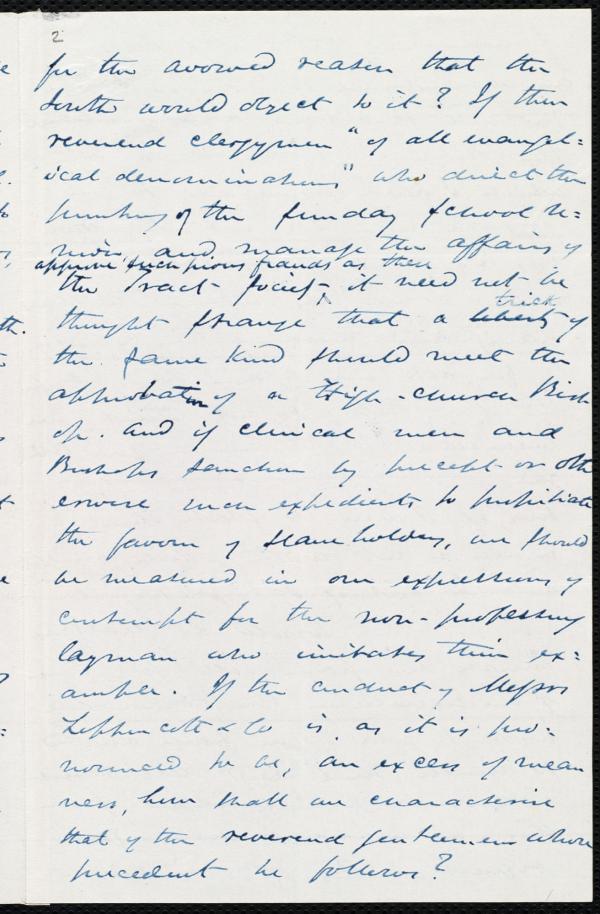 2
for the avowed reason that the
South would object to it? If then
reverend clergymen "of all evangel=
ical denominations" who direct the
printing of the Sunday School U=
nion, and manage the affairs of
approve such pious frauds as these
the Tract Society, it need not be
trick
thought strange that a liberty of
the same kind should meet the
approbation of a High-church Bish
op. And if clerical men and
Bishops sanction by precept or oth
erwise such expedients to propitiate
the favour of Slaveholders, we should
be measured in our expressions of
contempt for the non-professing
layman who imitates their ex=
ample. If the conduct of Messrs
Lippincott & Co is, as it is pro=
nounced to be, an excess of mean
ness, how shall we characterise
that of the reverend gentlemen whose
precedent he follows?